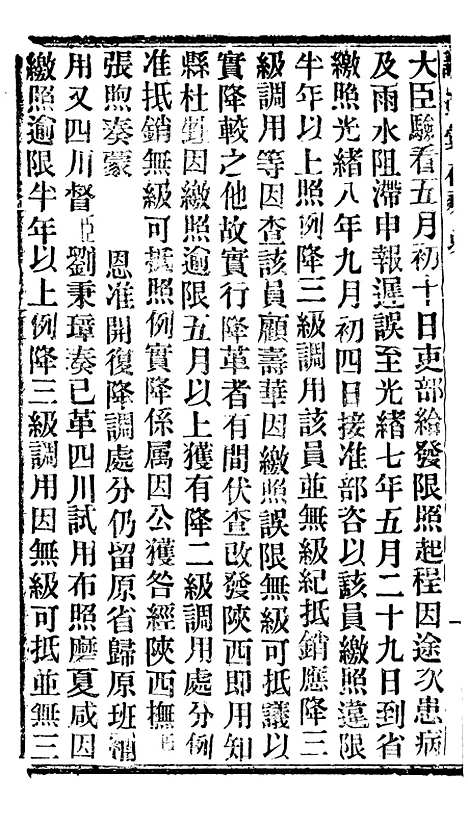 大臣驗看五月初十日吏部給發限照起程因途次患病
及雨水阻滯申報遲誤至光緒七年五月二十九日到省
繳照光緒八年九月初四日接准部咨以該員繳照違限
半年以上照例降三級調用該員並無級紀抵銷應降三
級調用等因查該員顧壽華因繳照誤限無級可抵議以
實降較之他故實行降革者有間伏查改發陝西即用知
縣杜 因繳照逾限五月以上獲有降二級調用處分例
准抵銷無級可抵照例實降係属因公獲咎經陝西撫臣
張煦奏蒙 恩准開復降調處分仍留原省歸原班補
用又四川督臣劉秉璋奏已革四川試用布照磨夏咸因
繳照逾限半年以上例降三級調用因無級可抵並無三